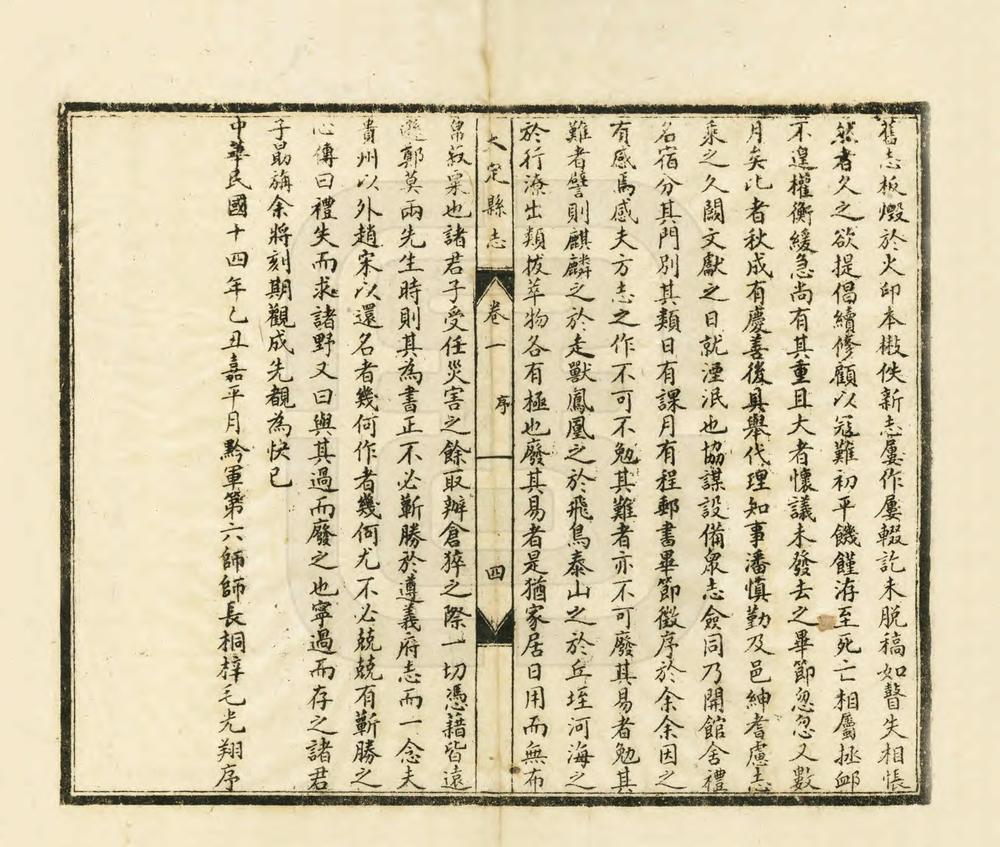 舊志板燬於火印本散佚新志屢作屢輟訖未脫稿如瞽失相悵
然者久之欲提倡續修顧以寇難初平饑饉洊至死亡相屬拯卹
不遑權衡緩急尚有其重且大者懷議未發去之畢節忽忽又數
月矣比者秋成有慶善後具舉代理知事潘慎勤及邑紳耆慮志
乘之久闕文獻之日就湮泯也協謀設備衆志僉同乃開館舍禮
名宿分其門別其類日有課月有程郵書畢節徵序於余余因之
有感焉感夫方志之作不可不勉其難者亦不可廢其易者勉其
難者譬則麒麟之於走獸鳳凰之於飛鳥泰山之於丘垤河海之
於行潦出類拔萃物各有極也廢其易者是猶家居日用而無布
大定縣志 卷一 序 四
帛菽粟也諸君子受任災害之餘取辦倉猝之際一切憑藉皆遠
遜鄭莫兩先生時則其為書正不必蘄勝於遵義府志而一念夫
貴州以外趙宋以還名者幾何作者幾何尤不必兢兢有蘄勝之
心傳曰禮失而求諸野又曰與其過而廢之也寧過而存之諸君
子勗旃余將刻期觀成先覩為快已
中華民國十四年乙丑嘉平月黔軍第六師師長桐梓毛光翔序